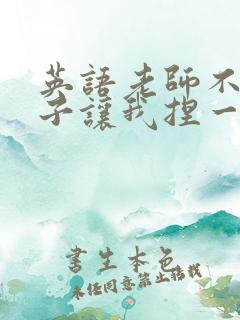 英語老師不
子讓我捏一
書生本色
未經同意禁止搭載